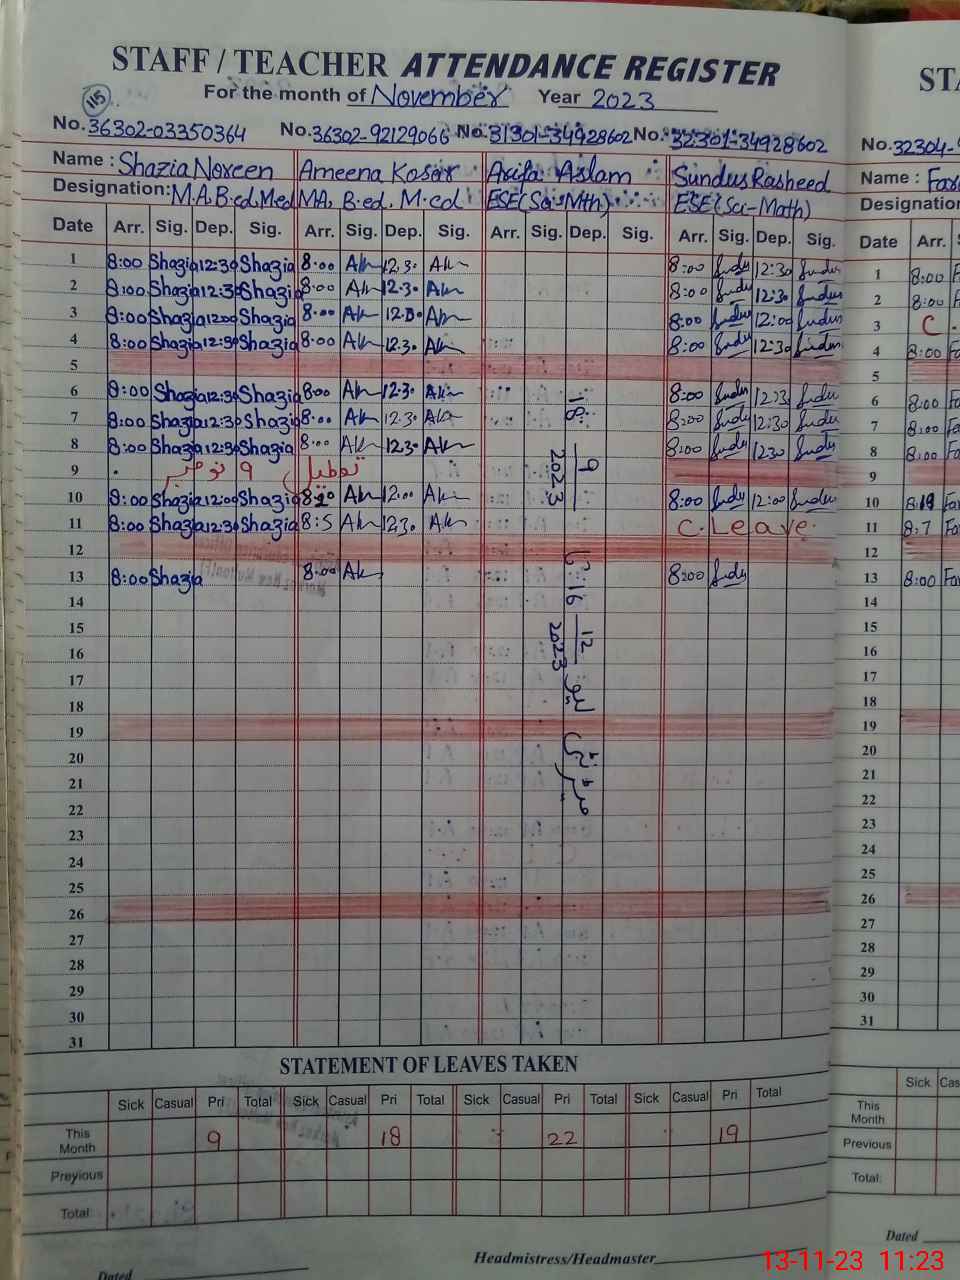 STAFF / TEACHER ATTENDANCE REGISTER
115
For the month of November Year 2023
No. 36302-03350364 No. 36302-92129066 No. 31301-34928602 No. 32301-34928602
Name : Shazia Noreen Ameena Kosar Asifa Aslam Sundus Rasheed
Designation: M.A, B.ed, Med MA, B.ed, M.ed ESE(Sci-Mth) ESE(Sci-Math)
Date Arr. Sig. Dep. Sig. Arr. Sig. Dep. Sig. Arr. Sig. Dep. Sig. Arr. Sig. Dep. Sig.
1 8:00 Shazia 12:30 Shazia 8:00 12:30 8:00 12:30
2 8:00 Shazia 12:30 Shazia 8:00 12:30 8:00 12:30
3 8:00 Shazia 12:00 Shazia 8:00 8:00 12:00
4 8:00 Shazia 12:30 Shazia 8:00 12:30 8:00 12:30
5
6 8:00 Shazia 12:30 Shazia 8:00 12:30 8:00 12:30
7 8:00 Shazia 12:30 Shazia 8:00 12:30 8:00 12:30
8 8:00 Shazia 12:30 Shazia 8:00 12:30 8:00 12:30
9 تعطیل 9 نومبر
10 8:00 Shazia 12:00 Shazia 12:00 8:00 12:00
11 8:00 Shazia 12:30 Shazia 8:5 12:30 C. Leave.
12
13 8:00 Shazia 8:00 8:00
14
15
16
17
18
19
20
21
22
23
24
25
26
27
28
29
30
31
18 9 2023 16 12 2023 میٹرنٹی لیو
STATEMENT OF LEAVES TAKEN
Sick Casual Pri Total Sick Casual Pri Total Sick Casual Pri Total Sick Casual Pri Total
This Month 9 18 22 19
Previous
Total:
Dated
Headmistress/Headmaster
ST
No. 32304-
Name :
Designation
Date Arr.
1 8:00
2 8:00
3 C.
4 8:00
5
6 8:00
7 8:00
8 8:00
9
10 8:19
11 8:7
12
13 8:00
14
15
16
17
18
19
20
21
22
23
24
25
26
27
28
29
30
31
Sick Cas
This Month
Previous
Total:
Dated
13-11-23 11:23